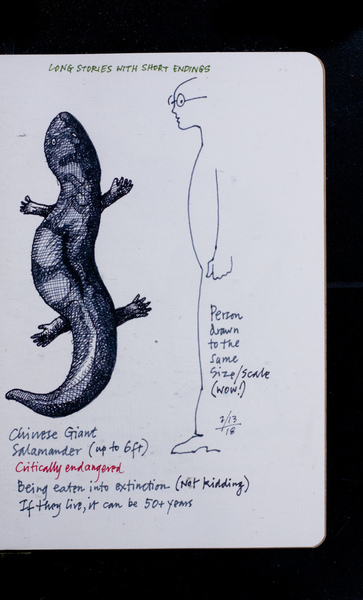 LONG STORIES WITH SHORT ENDINGS
Person
drawn
to the
same
size/scale
(wow!)
2/13
18
Chinese Giant
Salamander (up to 6ft)
Critically endangered
Being eaten into extinction (Not kidding)
If they live, it can be 50+ years